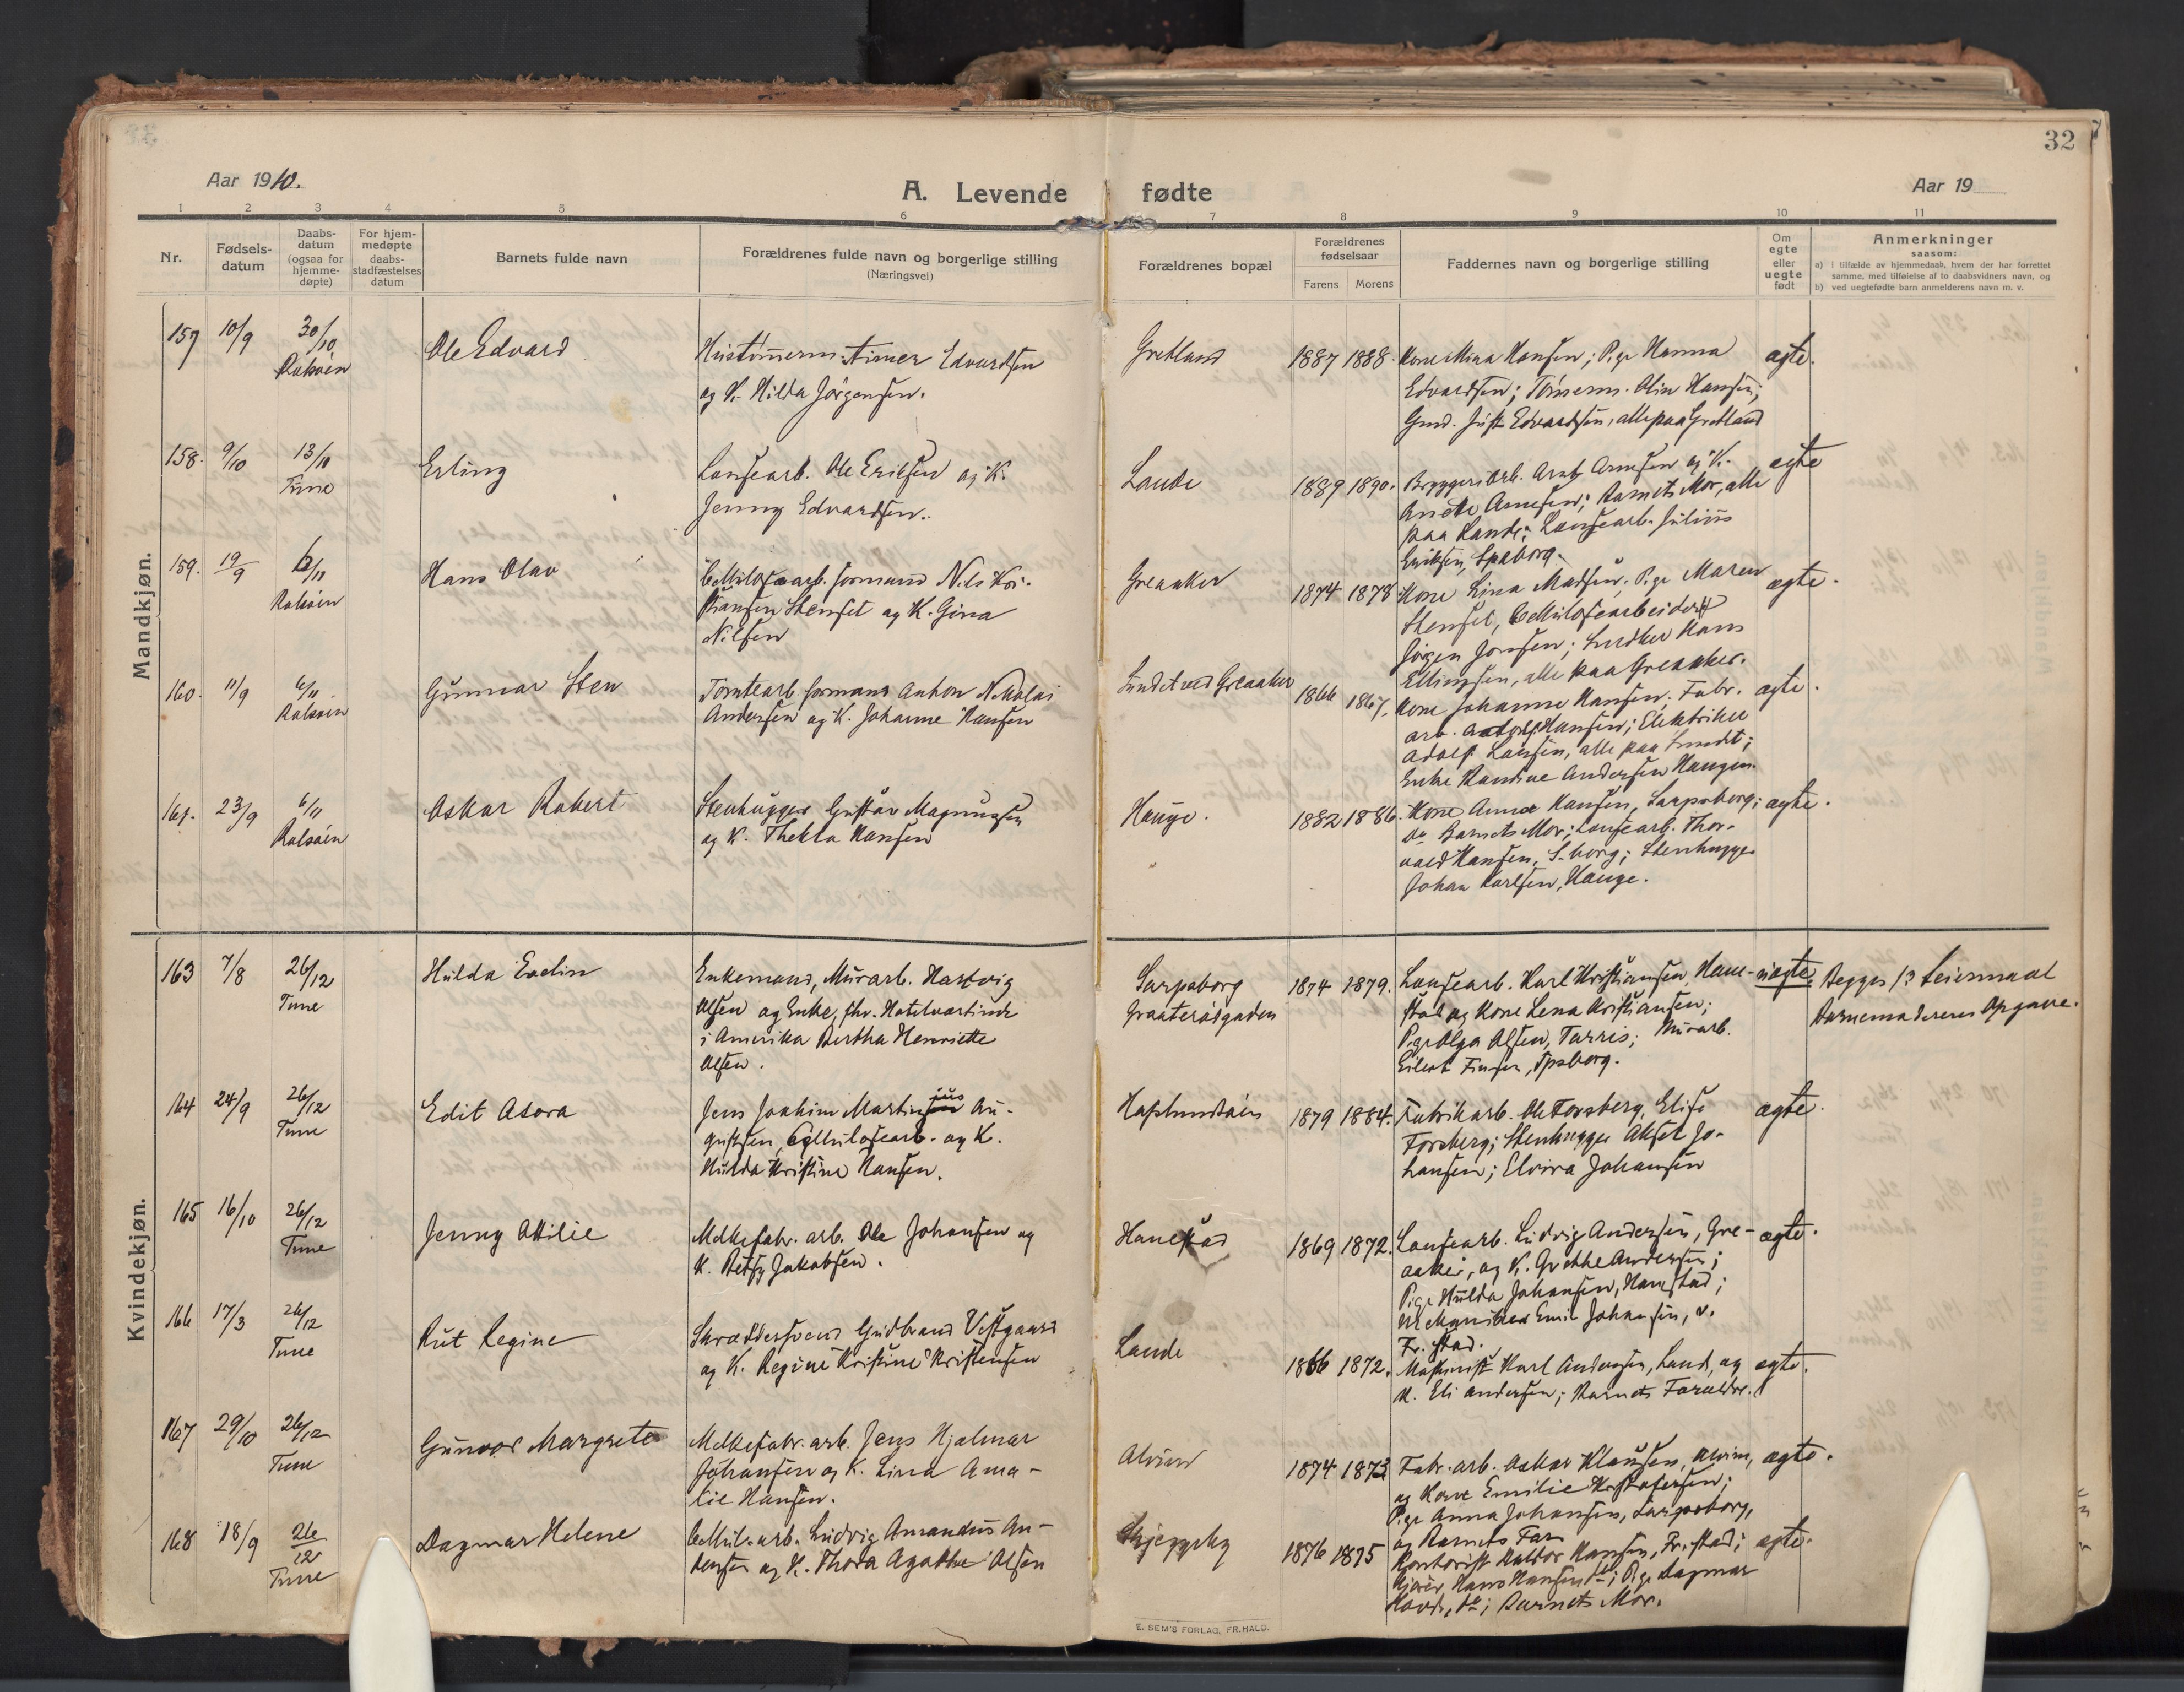 32
Aar 1910.
A. Levende fødte
Aar 19
1 2 3 4 5 6 7 8 9 10 11
Nr.
Fødsels-
datum
Daabs-
datum
(ogsaa for
hjemme-
døpte)
For hjem-
medøpte
daabs-
stadfæstelses
datum
Barnets fulde navn
Forældrenes fulde navn og borgerlige stilling
(Næringsvei)
Forældrenes bopæl
Forældrenes
fødselsaar
Farens Morens
Faddernes navn og borgerlige stilling
Om
egte
eller
uegte
født
Anmerkninger
saasom:
a) i tilfælde av hjemmedaab, hvem der har forrettet
samme, med tilføielse af to daabsvidners navn, og
b) ved uegtefødte barn anmelderens navn m. v.
Mandkjøn.
157 10/9 30/10
Rolsøen
Ole Edvard
Edvardsen
og K. Hilda Jørgensen.
Gretland
1887 1888.
Kone Mina Hansen; Pige Hanna
Edvardsen; Tømmerm. Olin Hansen;
Edvardsen, alle paa Gretland
egte.
158. 9/10 13/11
Tune
Erling
Lonsearb. Ole Eriksen og K.
Jenny Edvardsen.
Lande
1889 1890.
Bryggeriarb. Arnt Arnesen og K.
Anette Arnesen; Barnets Mor, alle
paa Lande; Lonsearb. Julius
Eriksen, Spsborg.
egte
159. 19/9 6/11
Rolsøen
Hans Olav
Cellulosearb. formand Nils Kri-
stiansen Stenset og K. Gina
Nilsen
Greaaker
1874 1878
Kone Lina Madsen, Pige Maren
Stenset, Cellulosearbeider
Jørgen Jonsen; Snedker Hans
Ellingsen, alle paa Greaaker.
egte.
160. 11/9 6/11
Rolsøen
Gunnar Sten
Tomtearb. formand Anton Nikolai
Andersen og K. Johanne Hansen
Lundet ved Greaaker
1866 1867.
Kone Johanne Hansen; Fabr.
arb. Adolf Hansen; Elektriker
Adolf Larsen, alle paa Lundet;
Enke Randine Andersen Haugen.
egte.
161. 23/9 6/11
Rolsøen
Oskar Robert
Stenhugger Gustav Magnussen
og K. Thekla Hansen
Hauge.
1882 1886.
Kone Anna Hansen, Sarpsborg;
Barnets Mor; Lonsearb. Thor-
vald Hansen, S-borg; Stenhugger
Johan Karlsen, Hauge.
egte.
Kvindekjøn.
163 7/8 26/12
Tune
Hulda Evelin
Enkemand, Murarb. Hartvig
Olsen og Enke, fhv. Hotelværtinde
i Amerika Bertha Henriette
Olsen.
Sarpsborg
Graaterøigaden
1874 1879.
Lonsearb. Karl Kristiansen, Hane-
stad og Kone Lena Kristiansen;
Pige Olga Olsen, Tarris; Murarb.
Eilert Finsen, Spsborg.
uegte.
Begges 1ste Leiermaal
Barnemoderens Opgave.
164 24/9 26/12
Tune
Edit Asora
Jens Joakim Martinius Au-
gustsen, Cellulosearb. og K.
Hulda Kristine Hansen.
Haslundsøen
1879 1884.
Fabrikarb. Ole Forsberg, Elise
Forsberg; Stenhugger Aksel Jo-
hansen; Elvira Johansen
egte.
165 16/10 26/12
Tune
Jenny Otilie
Melkefabr. arb. Ole Johansen og
K. Betsy Jakobsen.
Hanestad
1869 1872.
Lonsearb. Ludvig Andersen, Gre-
aaker, og K. Grethe Andersen;
Pige Hulda Johansen, Hanestad;
Mekaniker Emil Johansen, v.
Fr.stad.
egte.
166 17/3 26/12
Tune
Rut Regine
Skræddersvend Gudbrand Vestgaard
og K. Regine Kristine Kristensen
Lande
1866 1872.
Maskinist Karl Andersen, Lande, og
K. Eli Andersen; Barnets Forældre.
egte.
167 29/10 26/12
Tune
Gunvor Margrete
Melkefabr. arb. Jens Hjalmar
Johansen og K. Lina Ama-
lie Hansen.
Alvim
1874 1873
Fabr. arb. Oskar Klausen, Alvim,
og Kone Emilie Kristofersen;
Pige Anna Johansen, Sarpsborg,
og Barnets Far
egte.
168 18/9 26/12
Tune
Dagmar Helene
Cellul. arb. Ludvig Amandus An-
dersen og K. Thora Agathe Olsen
Skjeggeby
1876 1875
Kontorist Haldor Hansen, Fr.stad;
Hans Hansen do; Pige Dagmar
do; Barnets Mor.
egte.
E. SEM'S FORLAG, FR.HALD.